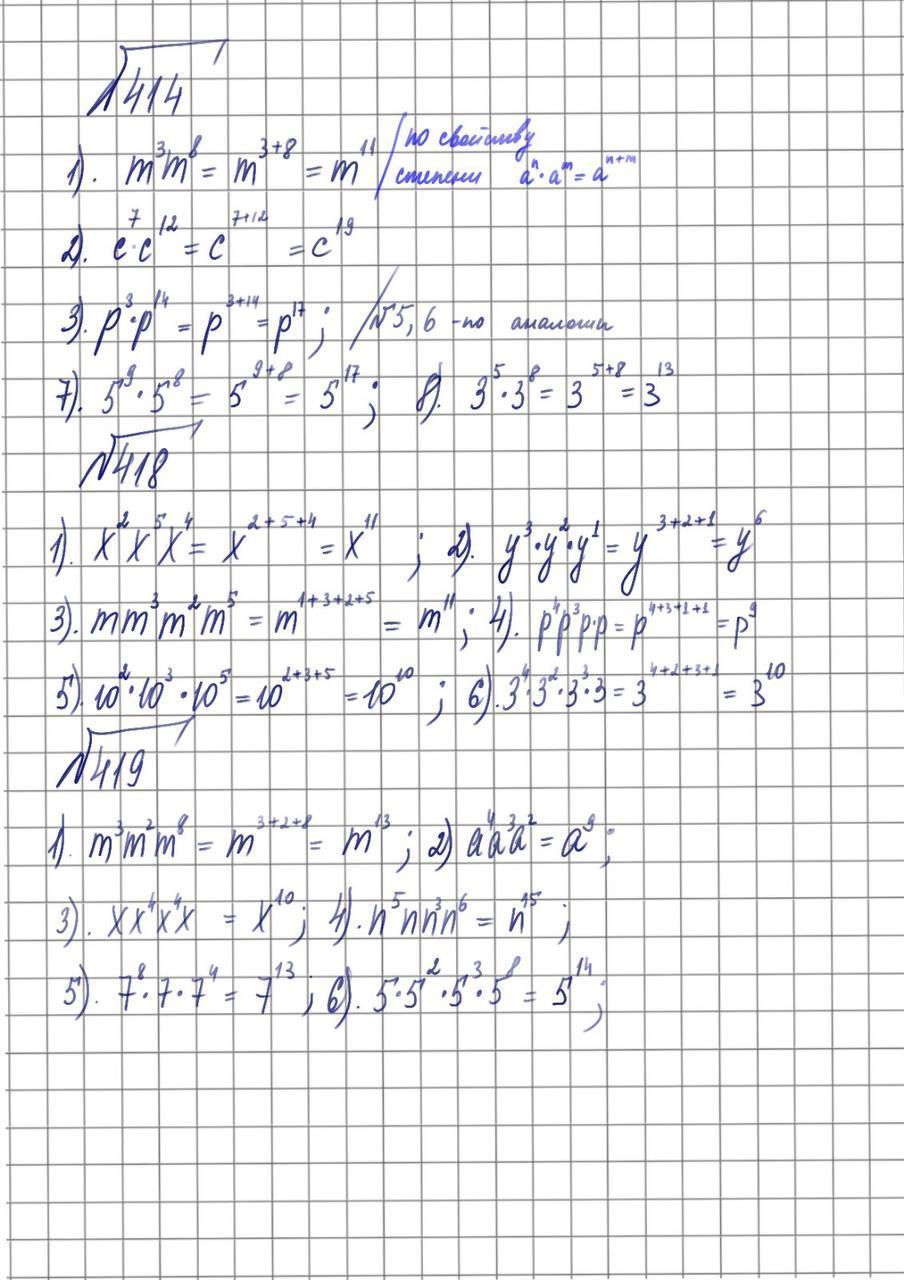 №414
1). m³m⁸ = m³⁺⁸ = m¹¹ / по свойству
степени aⁿ·aᵐ = aⁿ⁺ᵐ
2). c⁷·c¹² = c⁷⁺¹² = c¹⁹
3). p³·p¹⁴ = p³⁺¹⁴ = p¹⁷ ; / №5, 6 - по аналогии
7). 5⁹·5⁸ = 5⁹⁺⁸ = 5¹⁷ ; 8). 3⁵·3⁸ = 3⁵⁺⁸ = 3¹³
№418
1). x²x⁵x⁴ = x²⁺⁵⁺⁴ = x¹¹ ; 2). y³·y²·y¹ = y³⁺²⁺¹ = y⁶
3). mm³m²m⁵ = m¹⁺³⁺²⁺⁵ = m¹¹ ; 4). p⁴p³p·p = p⁴⁺³⁺¹⁺¹ = p⁹
5). 10²·10³·10⁵ = 10²⁺³⁺⁵ = 10¹⁰ ; 6). 3⁴·3²·3³·3 = 3⁴⁺²⁺³⁺¹ = 3¹⁰
№419
1). m³m²m⁸ = m³⁺²⁺⁸ = m¹³ ; 2) a⁴a³a² = a⁹ ;
3). xx⁴x⁴x = x¹⁰ ; 4). n⁵nn³n⁶ = n¹⁵ ;
5). 7⁸·7·7⁴ = 7¹³ ; 6). 5·5²·5³·5⁸ = 5¹⁴ ;